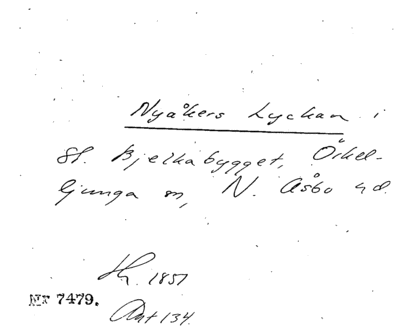 Nyåkers Lyckan i
St. Bjelkabygget, Örkel-
ljunga sn, N. Åsbo hd.
Sk. 1851
Nr 7479.
Ant 134.